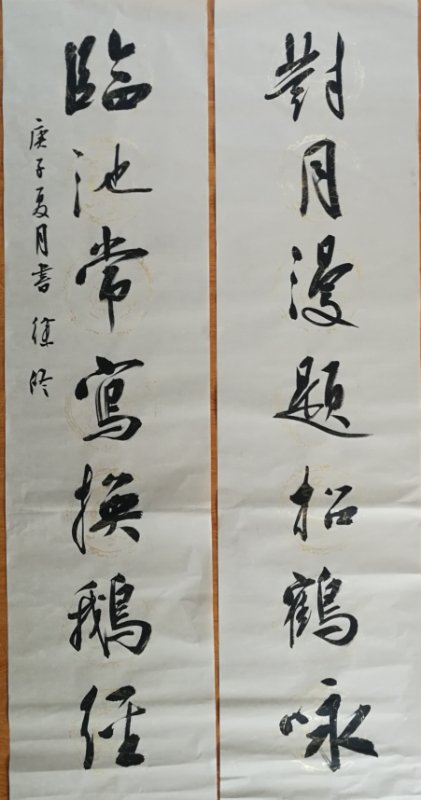 對月漫題招鶴咏
臨池常寫換鵝經
庚子夏月書 徐